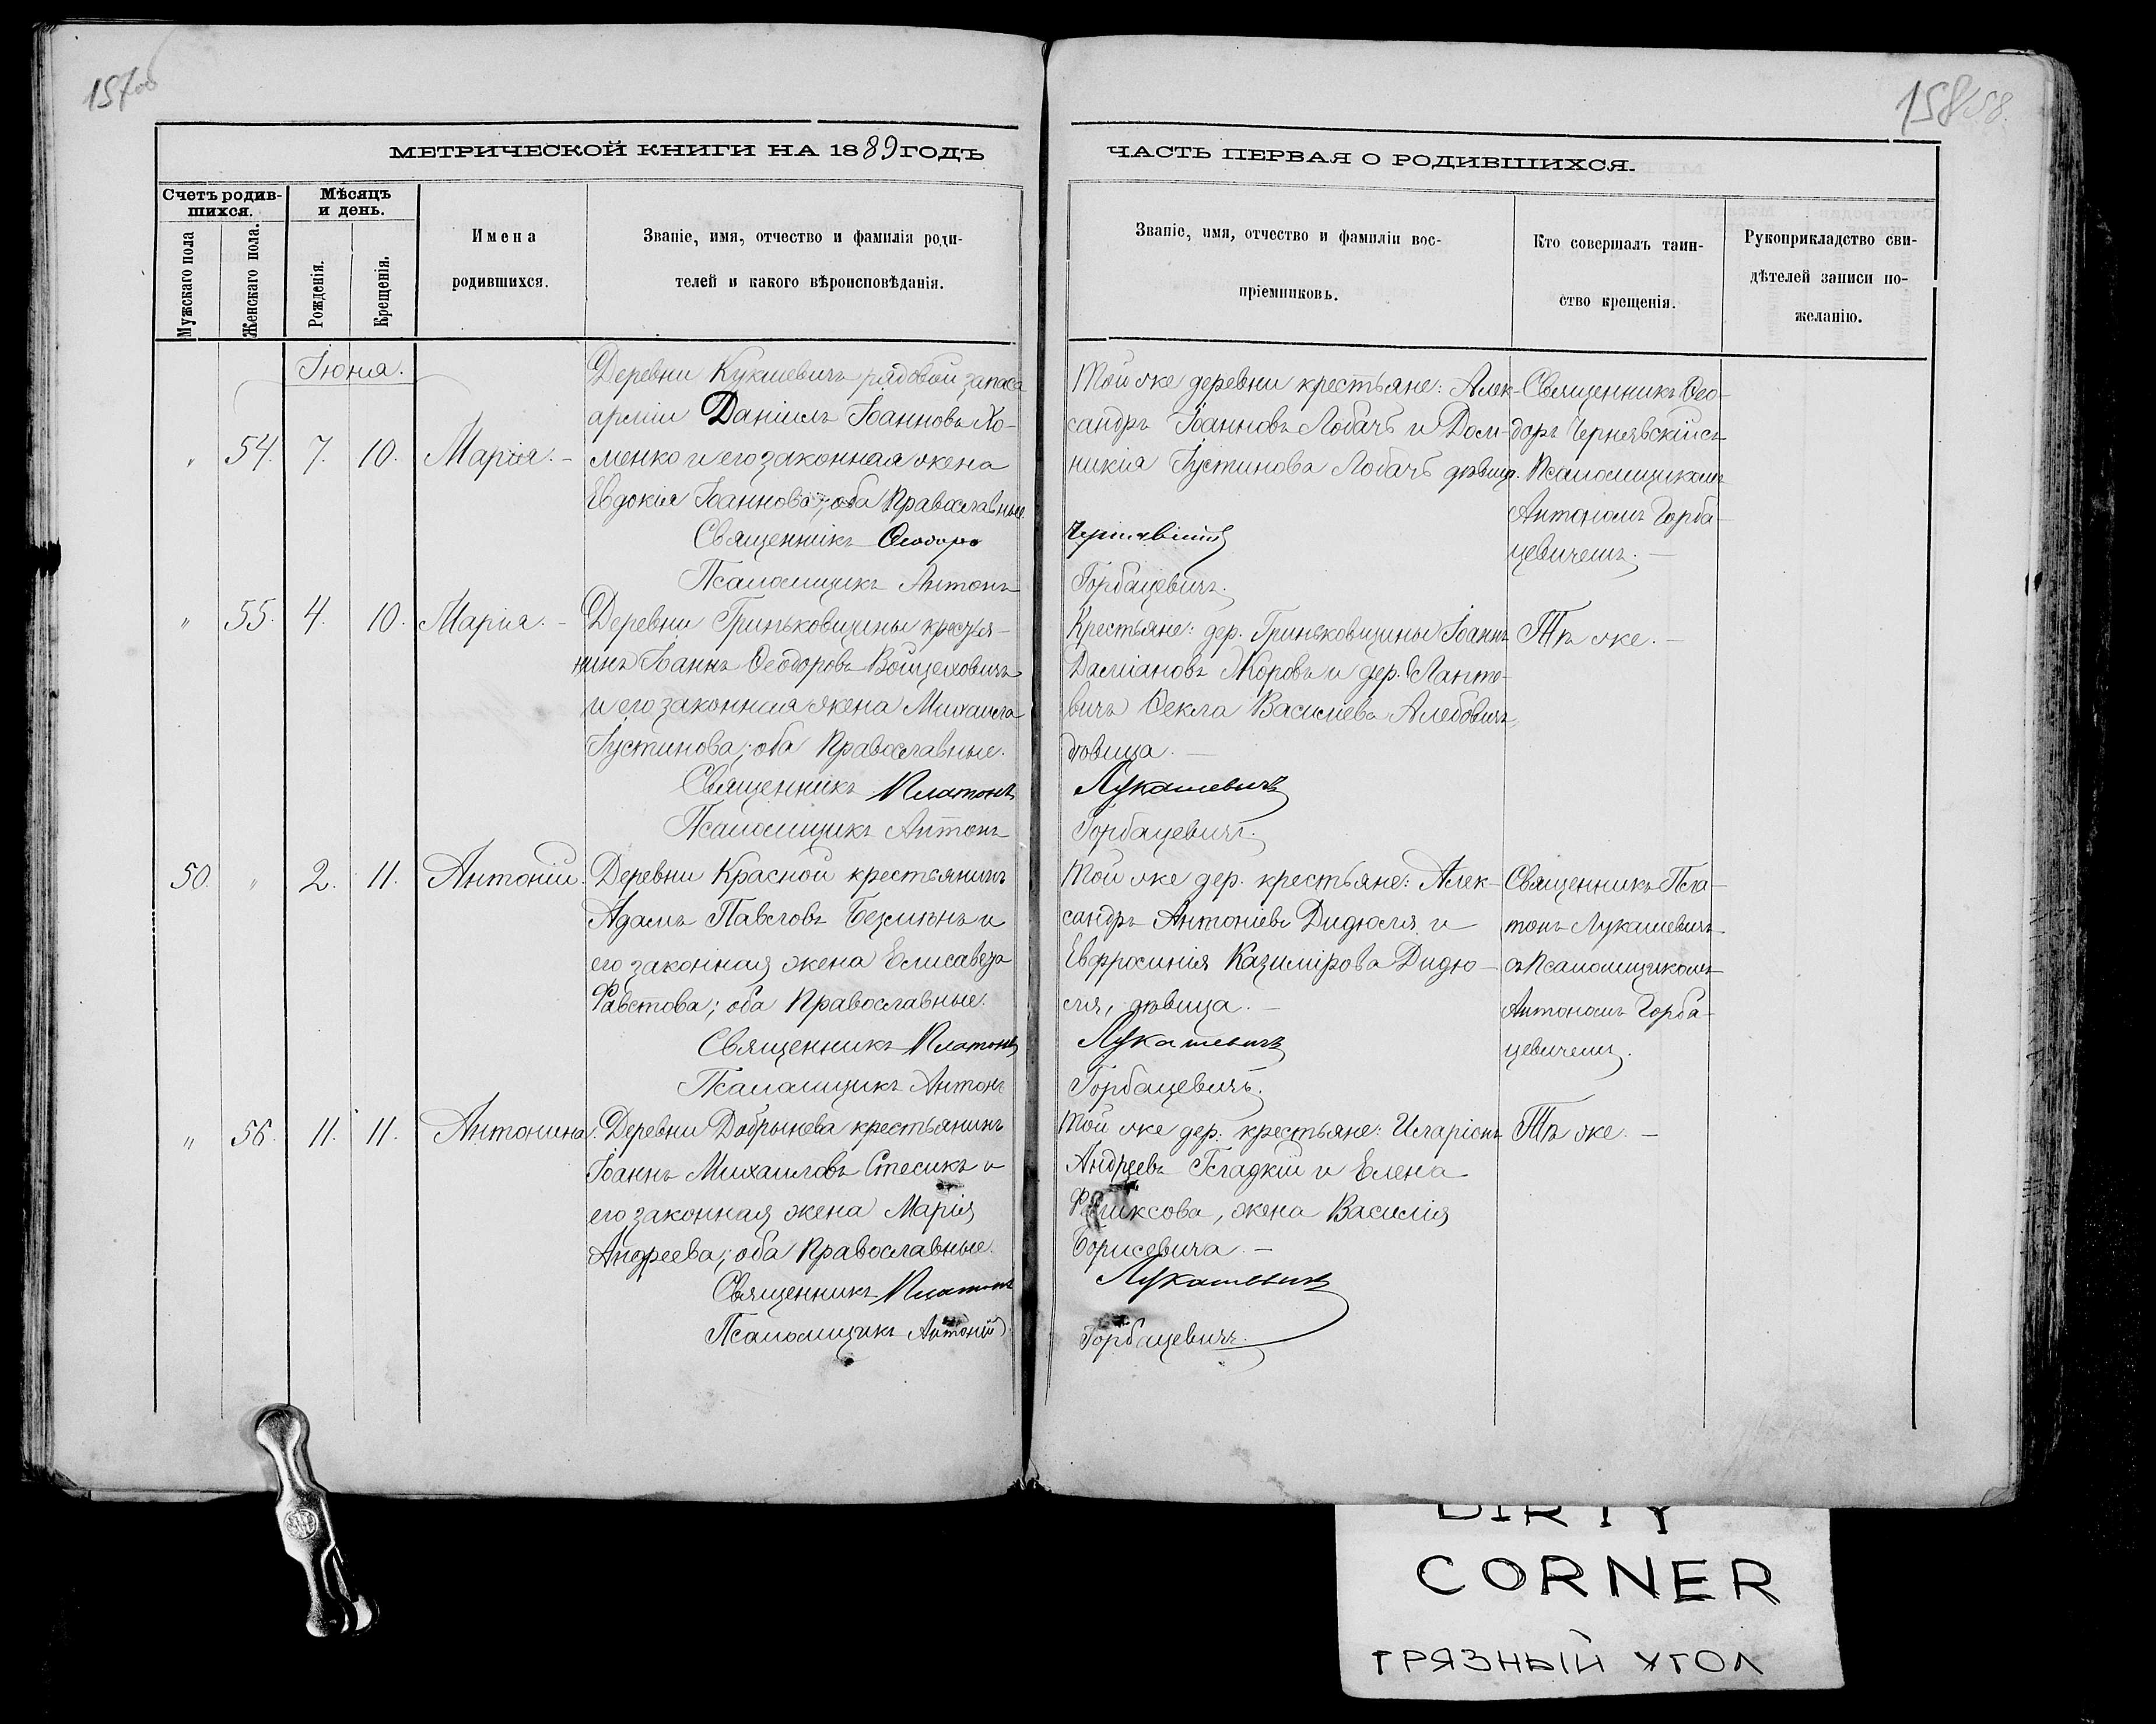 157
158 58.
МЕТРИЧЕСКОЙ КНИГИ НА 1889 ГОДЪ
ЧАСТЬ ПЕРВАЯ О РОДИВШИХСЯ.
Счетъ родив-
шихся.
Мужскаго пола
Женскаго пола.
Мѣсяцъ
и день.
Рожденія.
Крещенія.
Имена
родившихся.
Званіе, имя, отчество и фамилія роди-
телей и какого вѣроисповѣданія.
Званіе, имя, отчество и фамиліи вос-
пріемниковъ.
Кто совершалъ таин-
ство крещенія.
Рукоприкладство сви-
дѣтелей записи по-
желанію.
Іюня.
„ 54. 7. 10. Марія. –
Деревни Кукшевичъ рядовой запаса
арміи Даніилъ Іоанновъ Хо-
менко и его законная жена
Евдокія Іоаннова; оба Православные
Священникъ Ѳеодоръ
Псаломщикъ Антонъ
Той же деревни крестьяне: Алек-
сандръ Іоанновъ Лобачъ и Дом-
никія Іустинова Лобачъ дѣвица.
Чернявскій
Горбацевичъ.
Священникъ Ѳео-
доръ Чернявскій съ
Псаломщикомъ
Антономъ Горба-
цевичемъ. –
„ 55. 4. 10. Марія. –
Деревни Гриньковщины крестья-
нинъ Іоаннъ Ѳеодоровъ Войцеховичъ
и его законная жена Михаила
Іустинова; оба Православные.
Священникъ Платонъ
Псаломщикъ Антонъ
Крестьяне: дер. Гриньковщины Іоаннъ
Даміановъ Жоровъ и дер. Лапте-
вичъ Ѳекла Василіева Алебовичъ,
дѣвица. –
Лукашевичъ
Горбацевичъ.
Тѣ же. –
50. „ 2. 11. Антоній.
Деревни Красной крестьянинъ
Адамъ Павловъ Безмѣнъ и
его законная жена Елисавета
Фавстова; оба Православные.
Священникъ Платонъ
Псаломщикъ Антонъ
Той же дер. крестьяне: Алек-
сандръ Антоніевъ Дидюля и
Евфросинія Казимірова Дидю-
ля, дѣвица. –
Лукашевичъ
Горбацевичъ.
Священникъ Пла-
тонъ Лукашевичъ
съ Псаломщикомъ
Антономъ Горба-
цевичемъ.
„ 56. 11. 11. Антонина.
Деревни Добрынева крестьянинъ
Іоаннъ Михаиловъ Стесикъ и
его законная жена Марія
Андреева; оба Православные.
Священникъ Платонъ
Псаломщикъ Антоній
Той же дер. крестьяне: Иларіонъ
Андреевъ Гладкій и Елена
Феликсова, жена Василія
Борисевича. –
Лукашевичъ
Горбацевичъ.
Тѣ же. –
DIRTY
CORNER
ГРЯЗНЫЙ УГОЛ